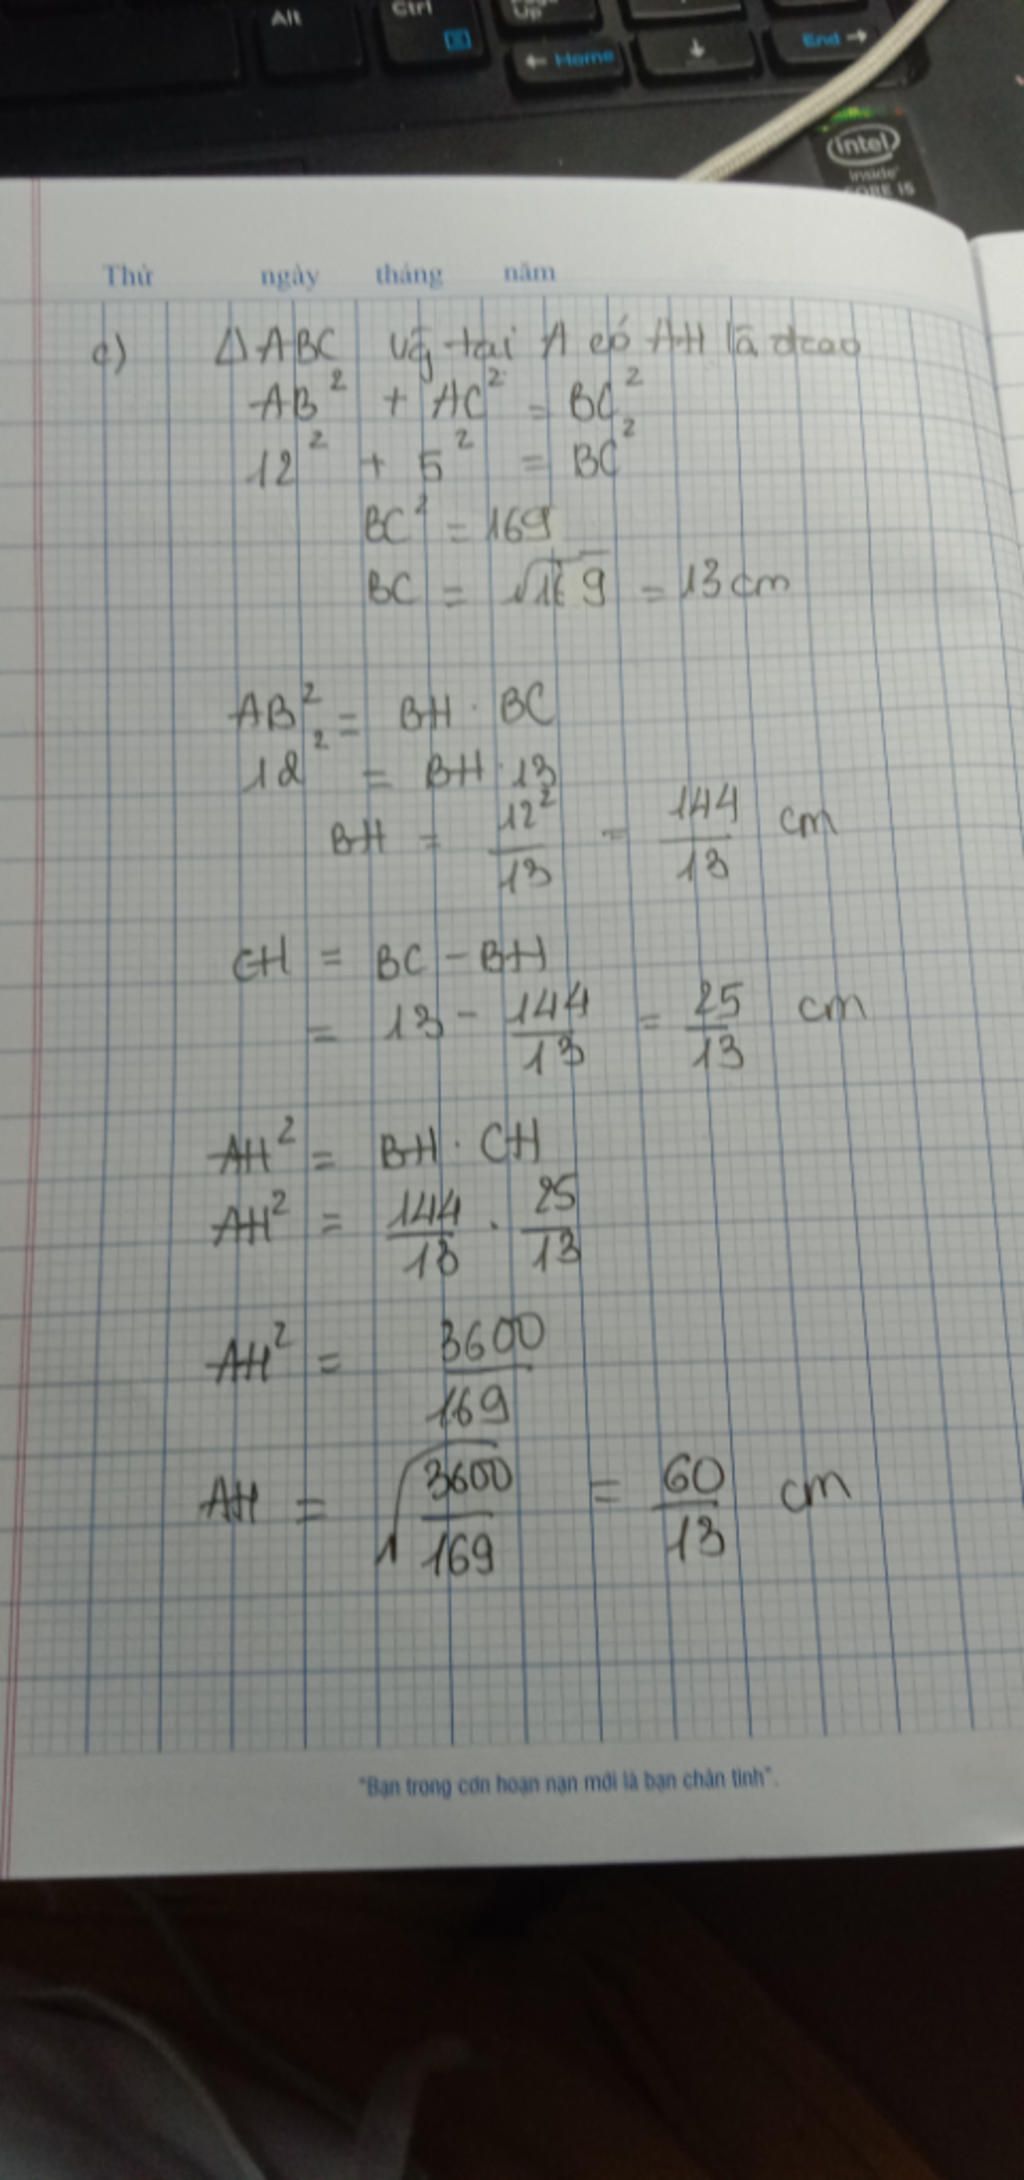 Alt
Ctrl
Up
← Home
↓
End →
intel
inside
CORE i5
Thứ ngày tháng năm
c) ΔABC vg tại A có AH là đcao
AB² + AC² = BC²
12² + 5² = BC²
BC² = 169
BC = √169 = 13 cm
AB² = BH . BC
12² = BH . 13
BH = 12²/13 = 144/13 cm
CH = BC - BH
= 13 - 144/13 = 25/13 cm
AH² = BH . CH
AH² = 144/13 . 25/13
AH² = 3600/169
AH = √3600/169 = 60/13 cm
"Bạn trong cơn hoạn nạn mới là bạn chân tình".